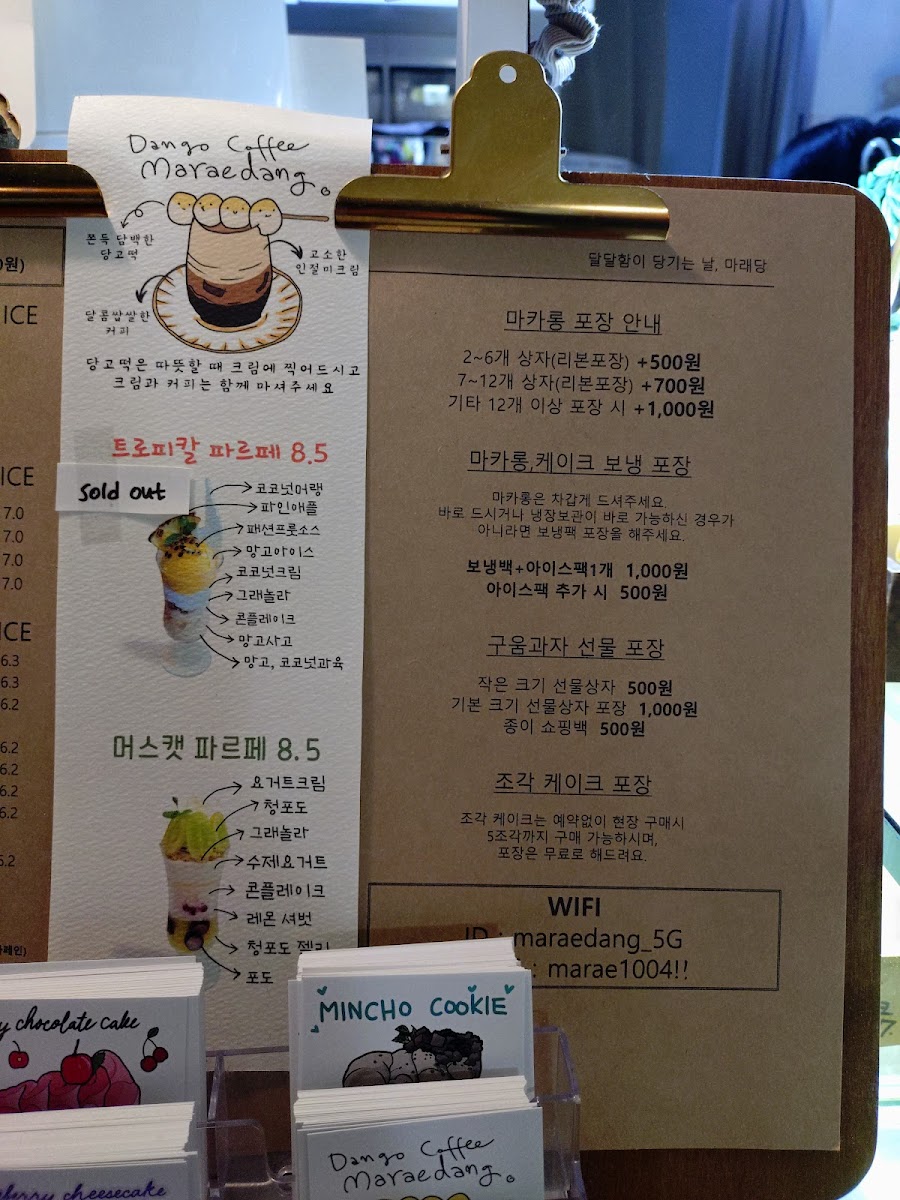 0원)
ICE
ICE
7.0
7.0
7.0
7.0
ICE
6.3
6.3
6.2
6.2
6.2
6.2
6.2
6.2
페인)
Dango Coffee
Maraedang。
쫀득 담백한
당고떡
고소한
인절미크림
달콤쌉쌀한
커피
당고떡은 따뜻할 때 크림에 찍어드시고
크림과 커피는 함께 마셔주세요
트로피칼 파르페 8.5
Sold out
코코넛머랭
파인애플
패션프룻소스
망고아이스
코코넛크림
그래놀라
콘플레이크
망고사고
망고, 코코넛과육
머스캣 파르페 8.5
요거트크림
청포도
그래놀라
수제요거트
콘플레이크
레몬 셔벗
청포도 젤리
포도
달달함이 당기는 날, 마래당
마카롱 포장 안내
2~6개 상자(리본포장) +500원
7~12개 상자(리본포장) +700원
기타 12개 이상 포장 시 +1,000원
마카롱,케이크 보냉 포장
마카롱은 차갑게 드셔주세요.
바로 드시거나 냉장보관이 바로 가능하신 경우가
아니라면 보냉팩 포장을 해주세요.
보냉백+아이스팩1개 1,000원
아이스팩 추가 시 500원
구움과자 선물 포장
작은 크기 선물상자 500원
기본 크기 선물상자 포장 1,000원
종이 쇼핑백 500원
조각 케이크 포장
조각 케이크는 예약없이 현장 구매시
5조각까지 구매 가능하시며,
포장은 무료로 해드려요.
WIFI
ID : maraedang_5G
: marae1004!!
y chocolate cake
MINCHO COOKIE
berry cheesecake
Dango Coffee
Maraedang。